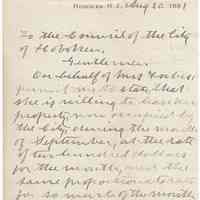 Hoboken, N.J., Aug 20 1881
To the Council of the City
of Hoboken.
Gentlemen:
On behalf of Mrs Forbes
permit me to state that
she is willing to lease her
property now occupied by
the City, during the month
of September, at the rate
of two hundred dollars
for the month, and the
same proportionate rate
for so much of the month